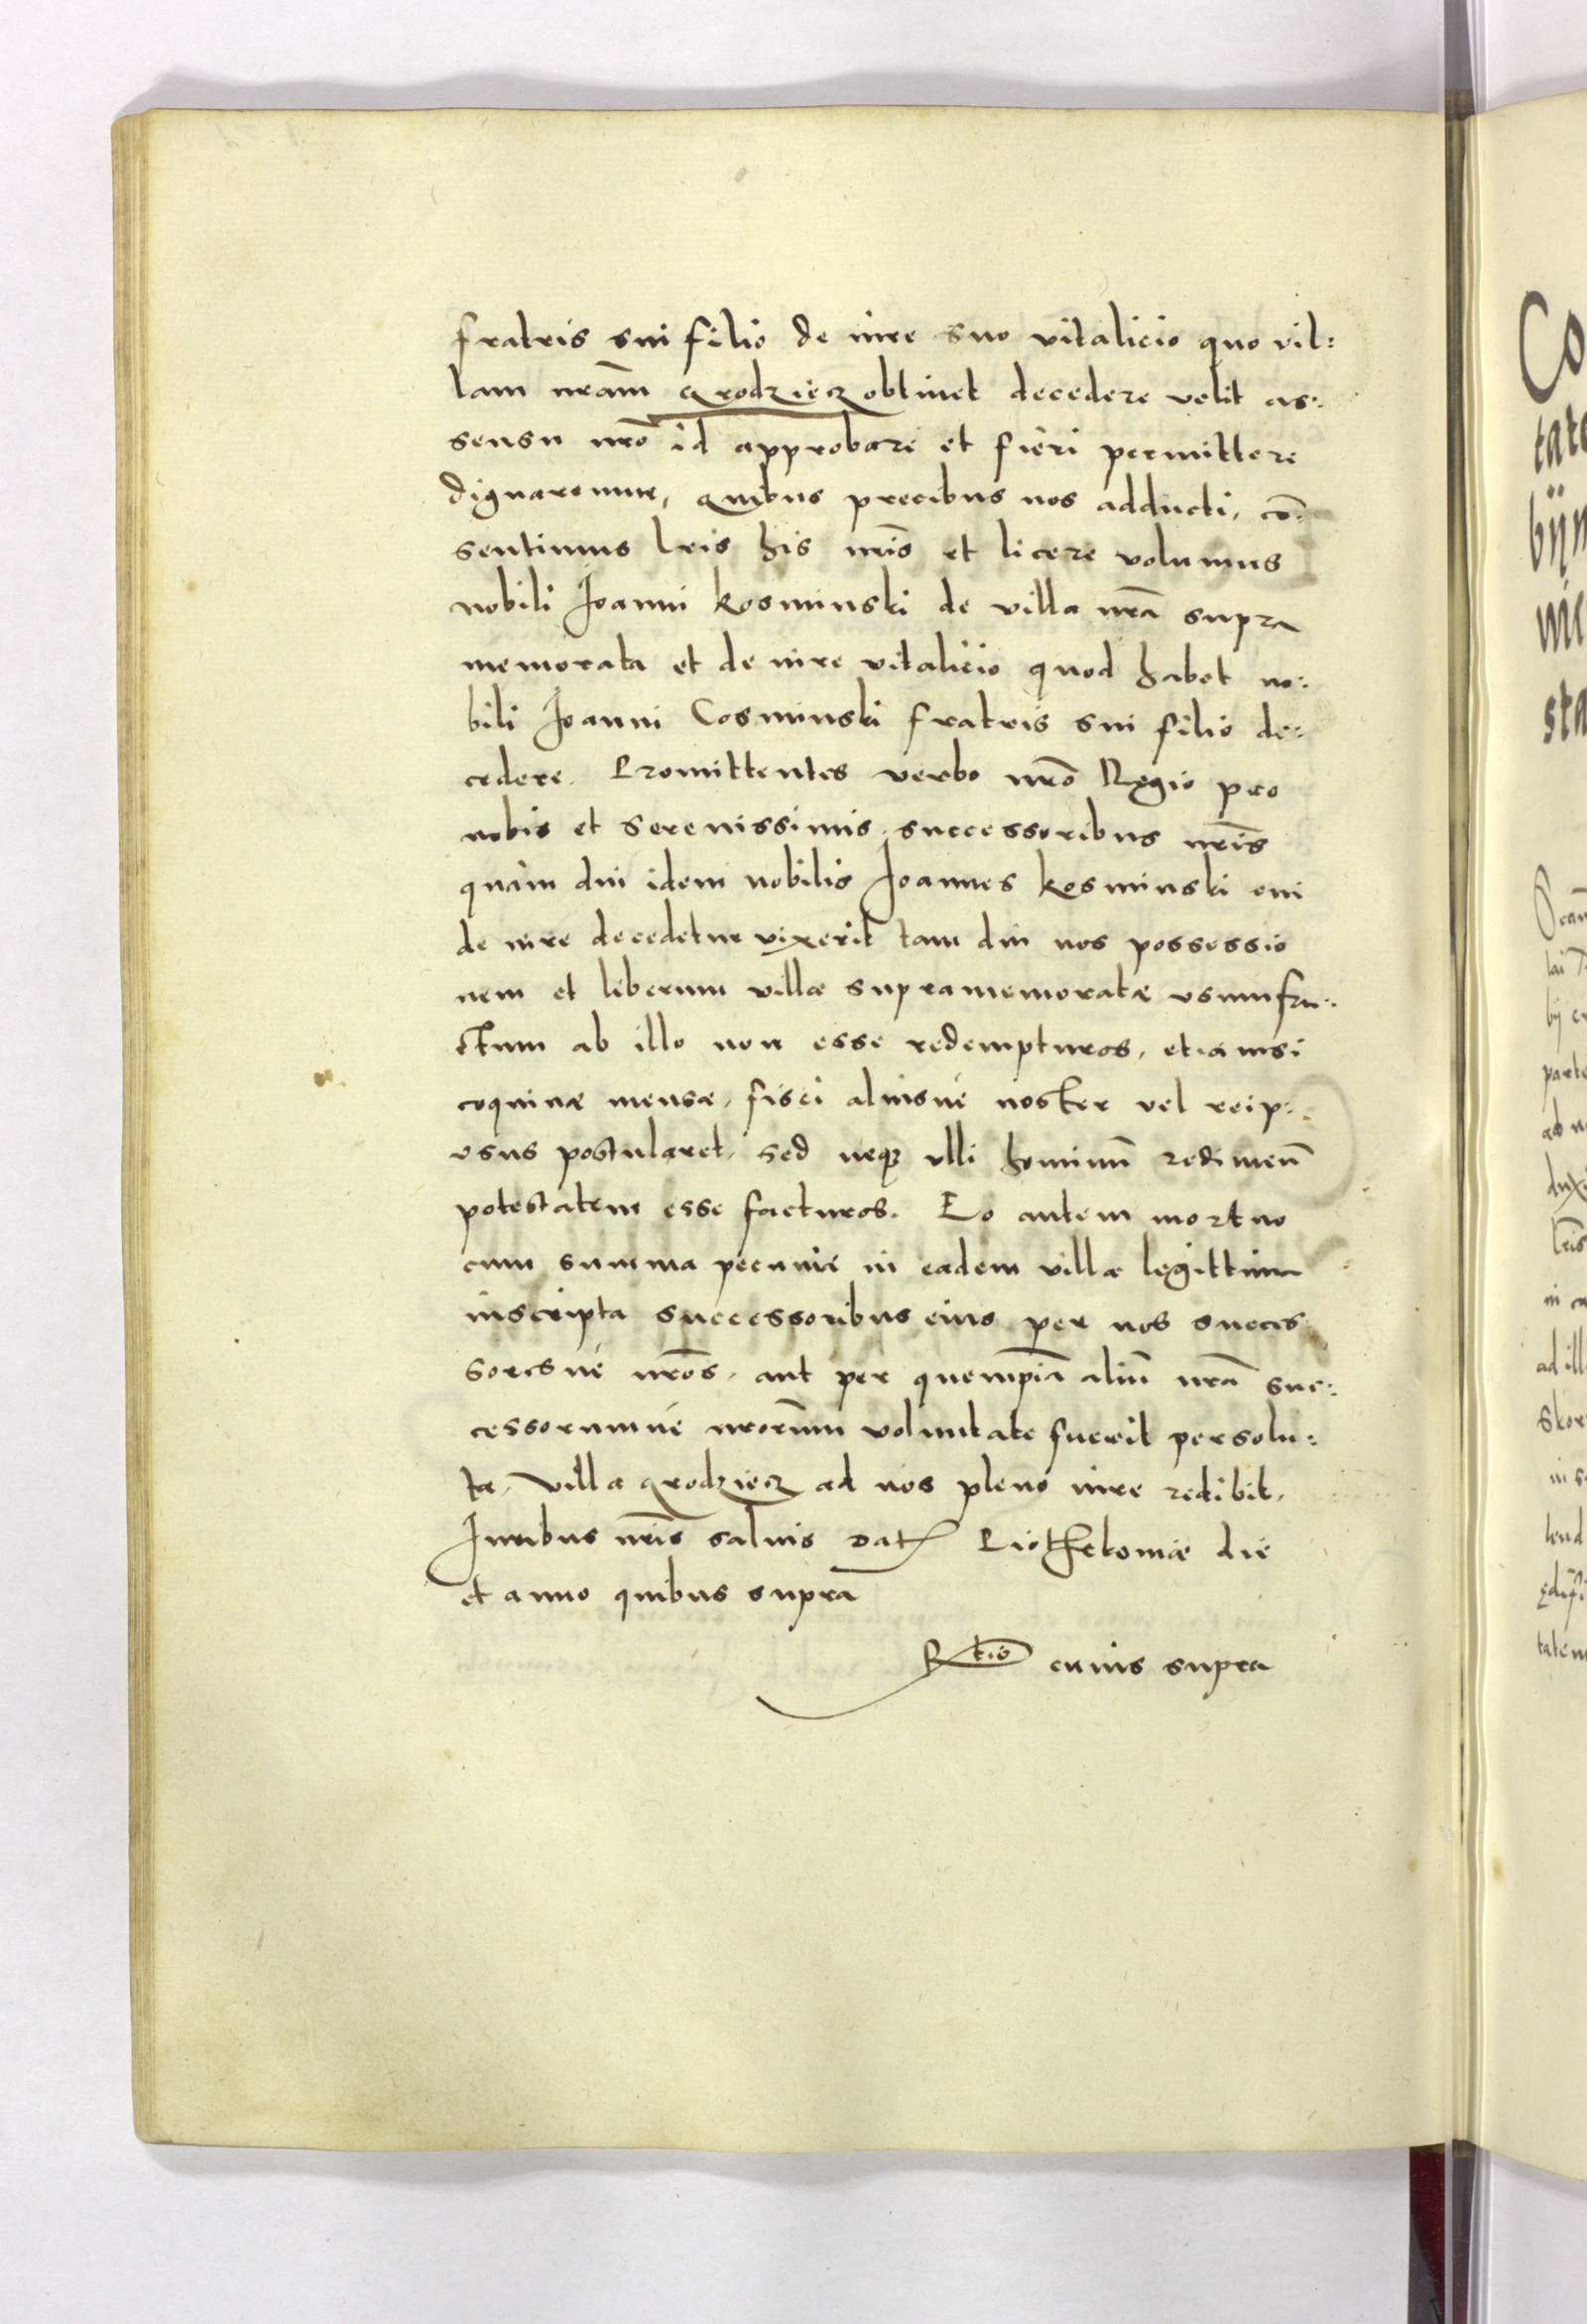 fratris sui filio de iure suo vitalicio quo vil:
lam nr̄am Grodziecz obtinet decedere velit as:
sensu nr̄o id approbare et fieri permittere
dignaremur, quibus precibus nos adducti, cō:
sentimus l̄ris his nr̄is et licere volumus
nobili Joanni Kosminski de villa nr̄a supra
memorata et de iure vitalicio quod habet no:
bili Joanni Cosminski fratris sui filio de:
cedere. Promittentes verbo nr̄o Regio pro
nobis et serenissimis successoribus nr̄is
quàm diu idem nobilis Joannes Kosminski cui
de iure decedetur vixerit tam diu nos possessio
nem et liberum villæ supramemoratæ vsumfru:
ctum ab illo non esse redempturos, etiamsi
coquinæ mensæ, fisci aliusué noster vel reip:
vsus postularet, sed neq; vlli hominū redimen̄
potestatem esse facturos. Eo autem mortuo
cum summa pecuniæ in eadem villa legittime
inscripta successoribus eius per nos succes
soresué nr̄os, aut per quempiā aliū nr̄a suc:
cessorumué nr̄orum voluntate fuerit persolu:
ta, villa Grodziecz ad nos pleno iure redibit,
Juribus nr̄is saluis Dat̄ Piothrkouiæ die
et anno quibus supra
R̄tio cuius supra
Co
tate
bijn
nic
sta
parte
ad ill
tatem